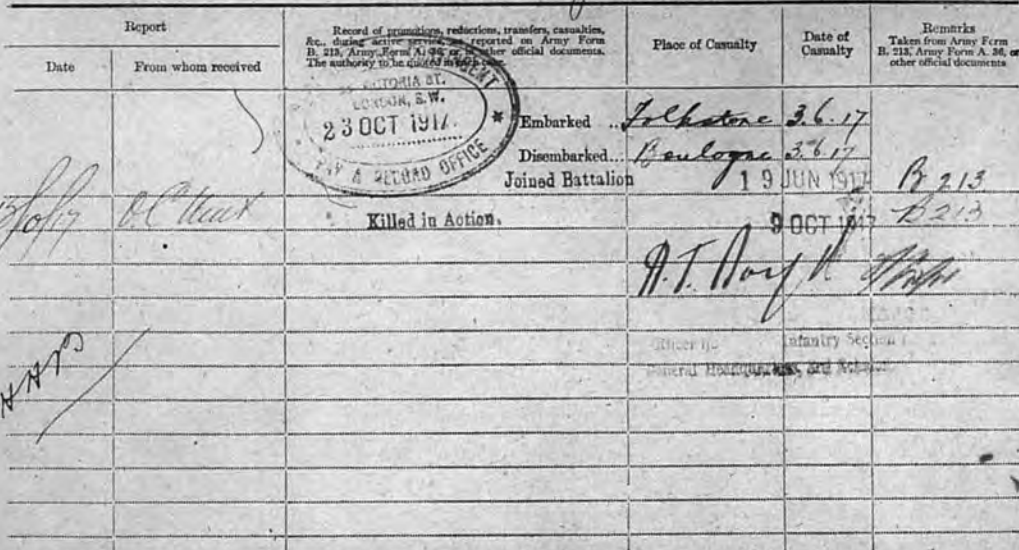 Report
Date
From whom received
Record of promotions, reductions, transfers, casualties,
&c., during active service, as reported on Army Form
B. 213, Army Form A. 36, or in other official documents.
The authority to be quoted in each case.
Place of Casualty
Date of
Casualty
Remarks
Taken from Army Form
B. 213, Army Form A. 36, or
other official documents
VICTORIA ST.
LONDON, S.W.
23 OCT 1917
PAY & RECORD OFFICE
Embarked .. Folkstone 3.6.17
Disembarked... Boulogne 3.6.17
Joined Battalion 19 JUN 1917 B 213
O.C. Unit Killed in Action. 9 OCT 1917 B213
A.T.
Officer i/c Infantry Section
General Headquarters,